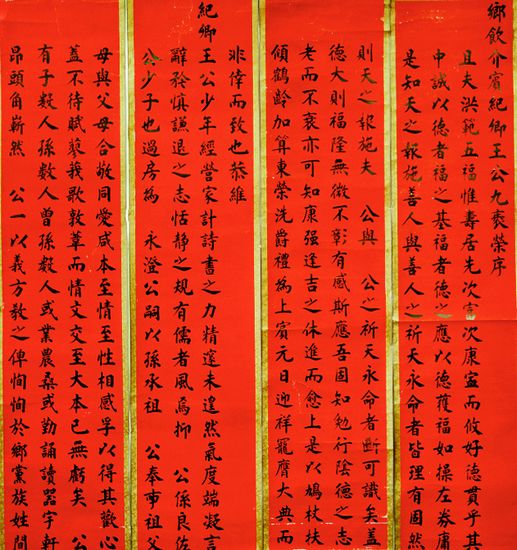 鄉飲介賓紀卿王公九袠榮序
且夫洪範五福惟壽居先次富次康寧而攸好德貫乎其
中誠以德者福之基福者德之應以德獲福如操左券庸
是知天之報施善人與善人之祈天永命者皆理有固然
則天之報施夫 公與 公之祈天永命者斷可識矣蓋
德大則福隆無微不彰有感斯應吾固知勉行陰德之志
老而不衰亦可知康强逢吉之休進而愈上是以鳩杖扶
傾鶴齡加算東榮洗爵禮為上賓元日迎祥寵膺大典而
非倖而致也恭維
紀卿王公少年經營家計詩書之力精邃未遑然氣度端凝言
辭矜慎謙退之志恬静之規有儒者風焉抑 公係良佐
公少子也過房為 永澄公嗣以孫承祖 公奉事祖父
母與父母合敬同愛咸本至情至性相感孚以得其歡心
蓋不待賦蓼莪歌敦葦而情文交至大本已無虧矣 公
有子數人孫數人曾孫數人或業農桑或勤誦讀器宇軒
昂頭角嶄然 公一以義方教之俾恂恂於鄉黨族姓間